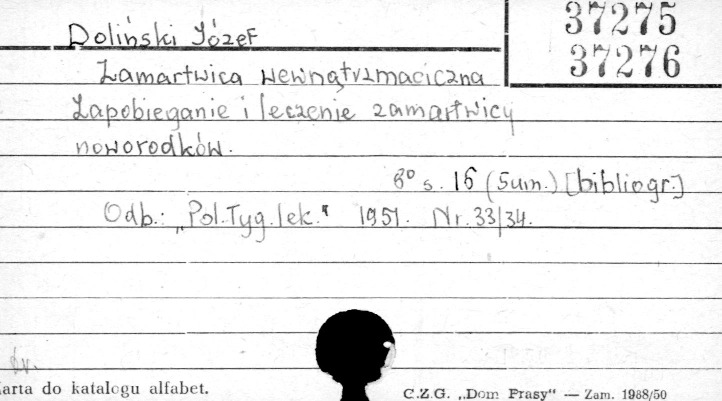 Doliński Józef
37275
37276
Zamartwica wewnątrzmaciczna
Zapobieganie i leczenie zamartwicy
noworodków.
8° s. 16 (Sum.) [bibliogr.]
Odb.: „Pol. Tyg. lek." 1951. Nr. 33/34.
arta do katalogu alfabet.
C.Z.G. „Dom Prasy" — Zam. 1988/50